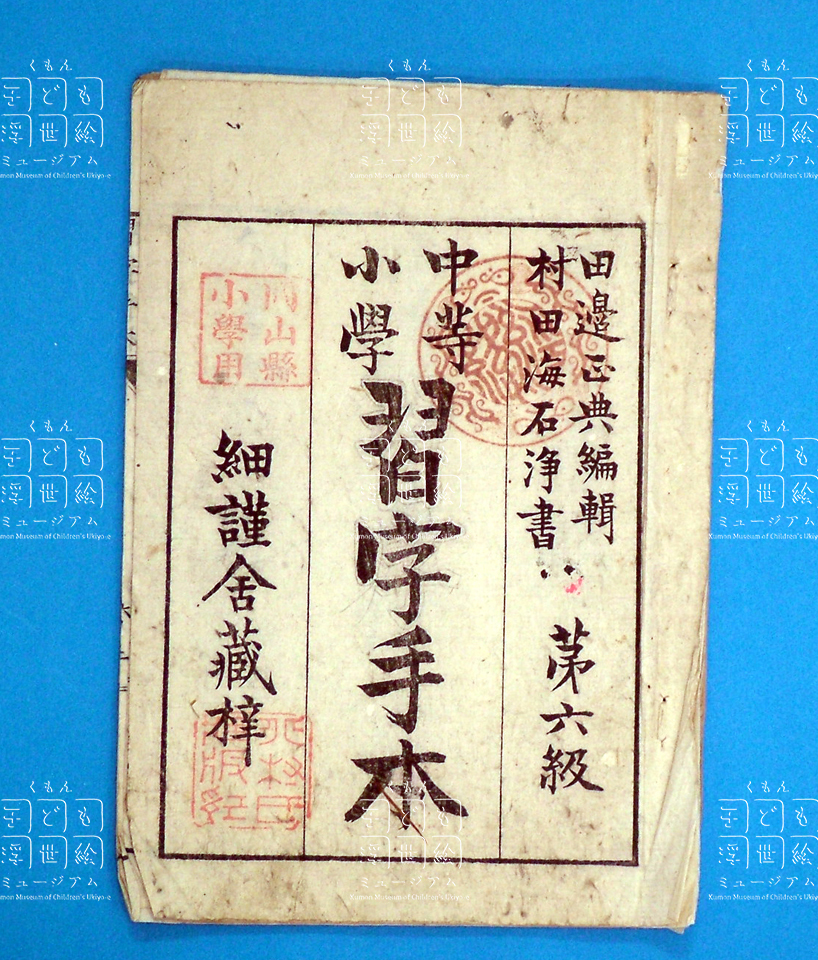 田邊正典編輯
村田海石淨書
第六級
中等
小學
習字手本
細謹舍藏梓
岡山縣
小學用
くもん
子ども
浮世絵
ミュージアム
Kumon Museum of Children's Ukiyo-e